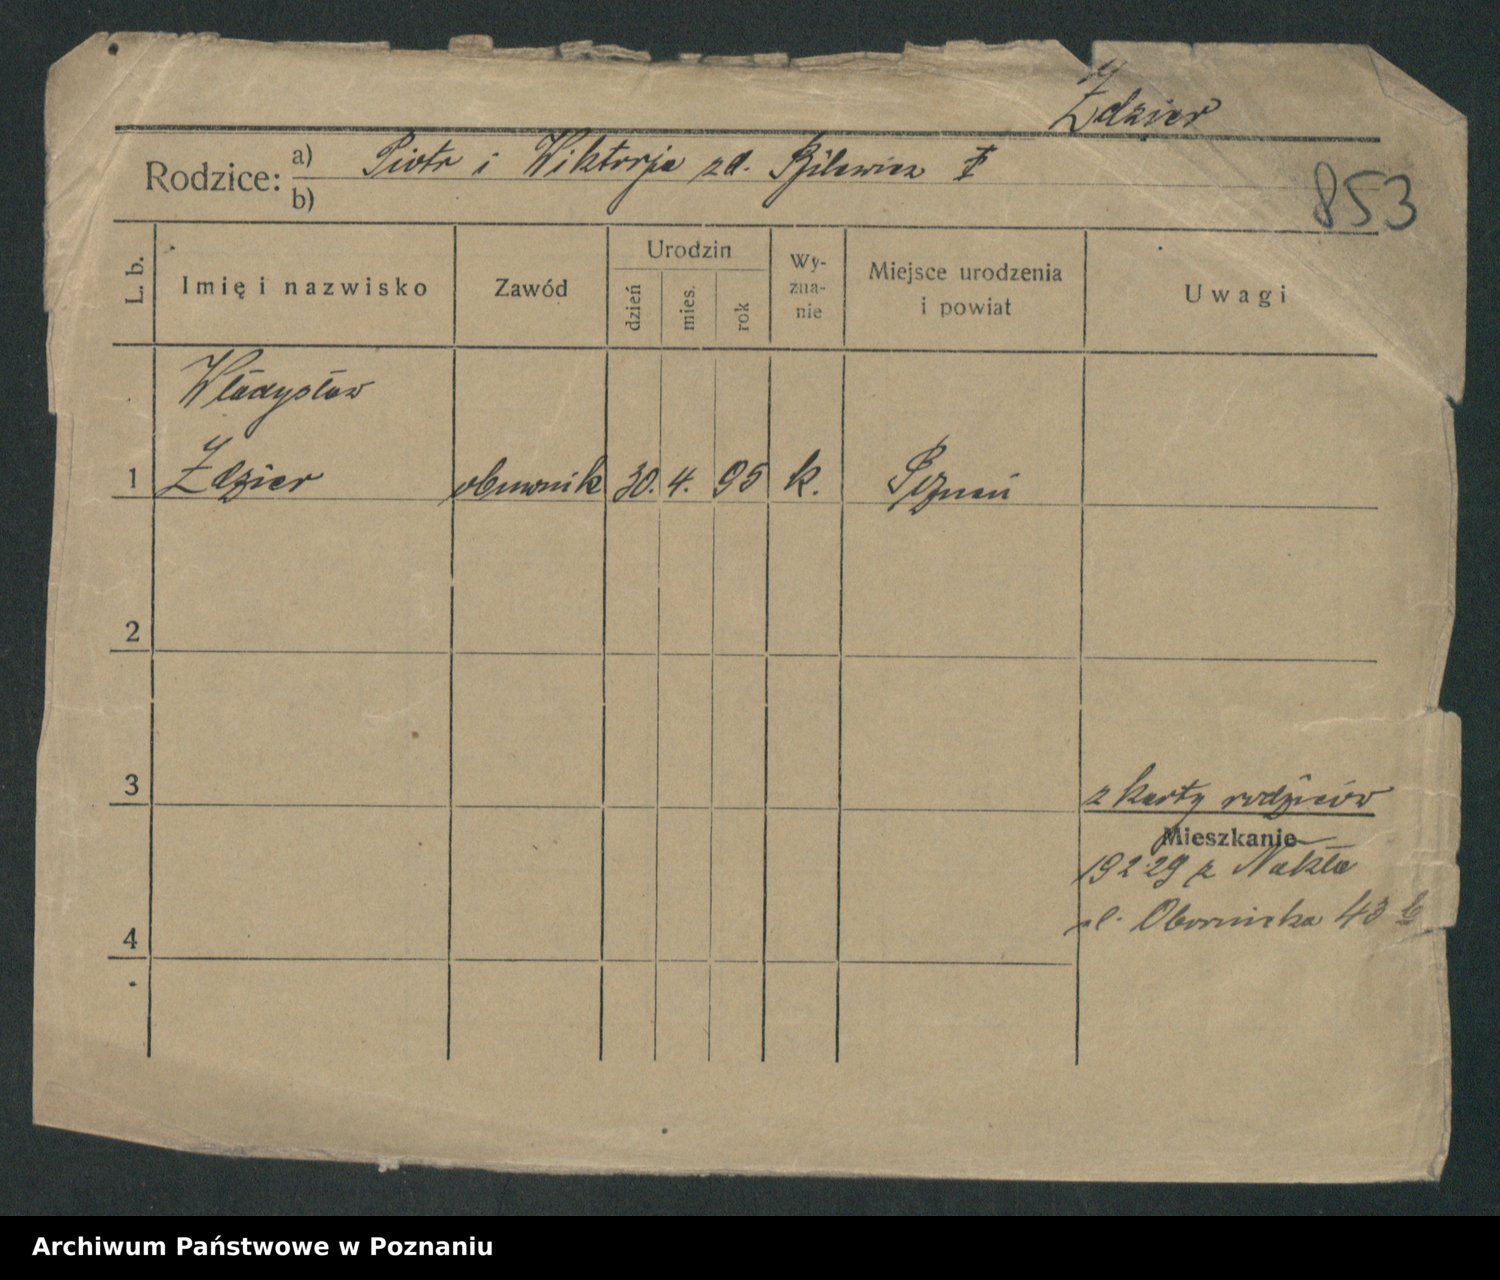 Ździer
Rodzice: a) Piotr i Wiktorja zd.
b)
853
L. b.
Imię i nazwisko
Zawód
Urodzin
dzień
mies.
rok
Wy-
zna-
nie
Miejsce urodzenia
i powiat
Uwagi
Władysław
1 Ździer obuwnik 30. 4. 95 k. Poznań
2
3
z karty rodziców
Mieszkanie
19229 z Nakła
ul. Obornicka 43
4
Archiwum Państwowe w Poznaniu